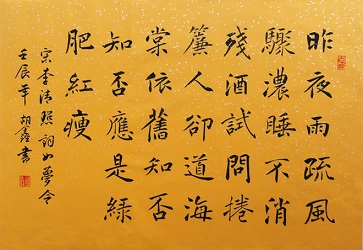 昨夜雨疏風
驟濃睡不消
殘酒試問捲
簾人卻道海
棠依舊知否
知否應是綠
肥紅瘦
宋李清照詞如夢令
壬辰年胡鑫書